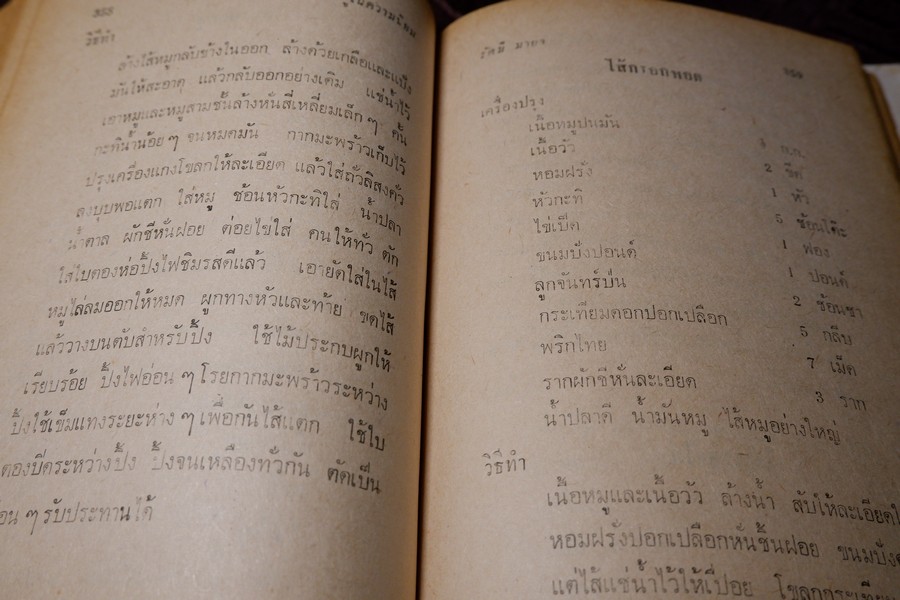 358
วิธีทำ
ล้างไส้หมูกลับข้างในออก ล้างด้วยเกลือและแป้ง
มันให้สะอาด แล้วกลับออกอย่างเดิม แช่น้ำไว้
เอาหมูและหมูสามชั้นล้างหั่นสี่เหลี่ยมเล็ก ๆ คั้น
กะทิน้ำน้อย ๆ จนหมดมัน กากมะพร้าวเก็บไว้
ปรุงเครื่องแกงโขลกให้ละเอียด แล้วใส่ถั่วลิสงคั่ว
ลงบุบพอแตก ใส่หมู ช้อนหัวกะทิใส่ น้ำปลา
น้ำตาล ผักชีหั่นฝอย ต่อยไข่ใส่ คนให้ทั่ว ตัก
ใส่ใบตองห่อปิ้งไฟชิมรสดีแล้ว เอายัดใส่ในไส้
หมูไล่ลมออกให้หมด ผูกทางหัวและท้าย ขดไส้
แล้ววางบนตับสำหรับปิ้ง ใช้ไม้ประกบผูกให้
เรียบร้อย ปิ้งไฟอ่อน ๆ โรยกากมะพร้าวระหว่าง
ปิ้งใช้เข็มแทงระยะห่าง ๆ เพื่อกันไส้แตก ใช้ใบ
ตองปิดระหว่างปิ้ง ปิ้งจนเหลืองทั่วกัน ตัดเป็น
ๆ รับประทานได้
359
ไส้กรอกทอด
เครื่องปรุง
เนื้อหมูปนมัน ก.ก.
เนื้อวัว 2 ขีด
หอมฝรั่ง 1 หัว
หัวกะทิ 5 ช้อนโต๊ะ
ไข่เป็ด 1 ฟอง
ขนมปังปอนด์ 1 ปอนด์
ลูกจันทร์ป่น 2 ช้อนชา
กระเทียมดอกปอกเปลือก 5 กลีบ
พริกไทย 7 เม็ด
รากผักชีหั่นละเอียด 3 ราก
น้ำปลาดี น้ำมันหมู ไส้หมูอย่างใหญ่
วิธีทำ
เนื้อหมูและเนื้อวัว ล้างน้ำ สับให้ละเอียด
หอมฝรั่งปอกเปลือกหั่นชิ้นฝอย
แต่ไส้แช่น้ำไว้ให้เปื่อย